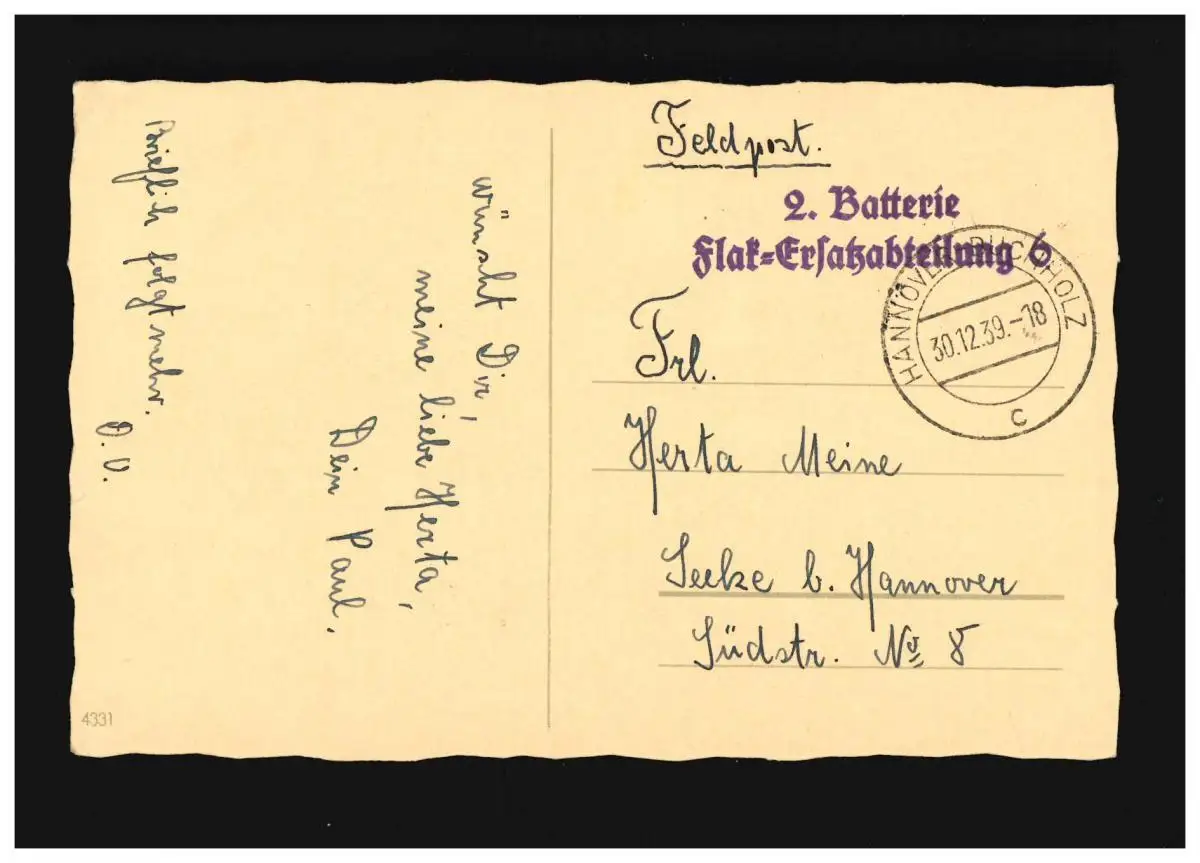 wünscht Dir,
meine liebe Herta,
Dein Paul.
Brieflich folgt mehr.
D. O.
4331
Feldpost.
2. Batterie
Flak-Ersatzabteilung 6
HANNOVER-BUCHHOLZ
30.12.39.-18
c
Frl.
Herta Meine
Seelze b. Hannover
Südstr. No 8